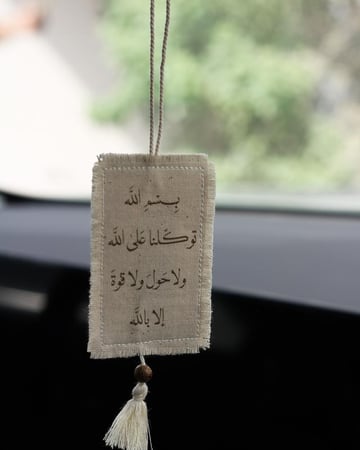 بِسْمِ اللَّه
توكلنا عَلى اللَّه
ولا حَولَ ولا قوةَ
إلا باللَّهِ